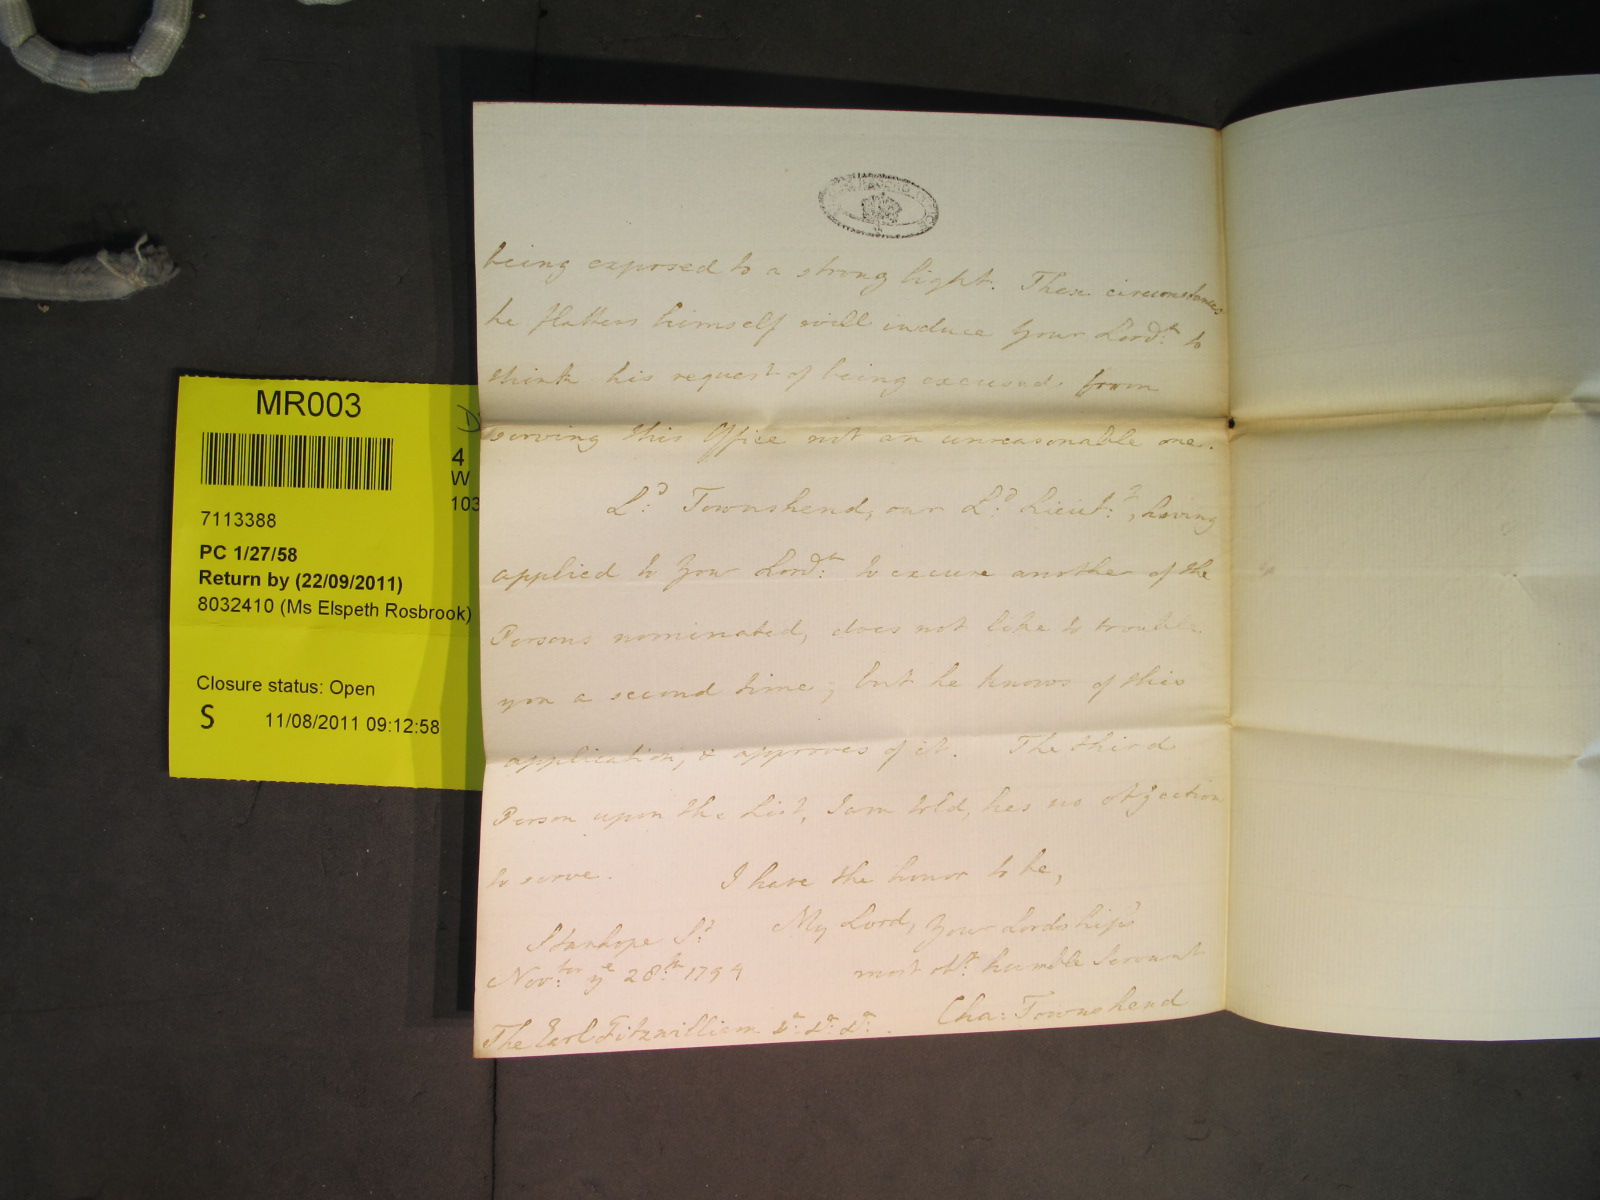 being exposed to a strong light. These circumstances
he flatters himself will induce Your Lordp. to
think his request of being excused from
serving this Office not an unreasonable one.
Ld. Townshend, our Ld. Lieut.t, having
applied to Your Lordp. to excuse another of the
Persons nominated, does not like to trouble
you a second time; but he knows of this
application, & approves of it. The third
Person upon the List, I am told, has no objection
to serve. I have the honor to be,
My Lord, Your Lordship's
most obt. humble Servant
Cha: Townshend
Stanhope St.
Nov.ber ye 28th. 1794
The Earl Fitzwilliam
MR003
4
W
103
7113388
PC 1/27/58
Return by (22/09/2011)
8032410 (Ms Elspeth Rosbrook)
Closure status: Open
S 11/08/2011 09:12:58